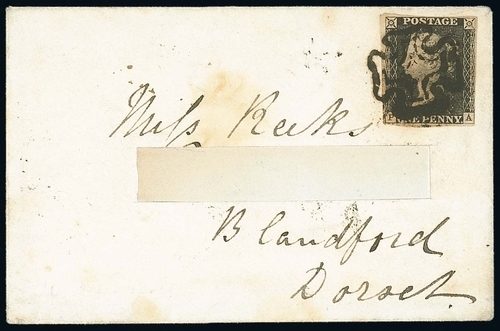 POSTAGE
E A
ONE PENNY
Miss Reeks
Blandford
Dorset.